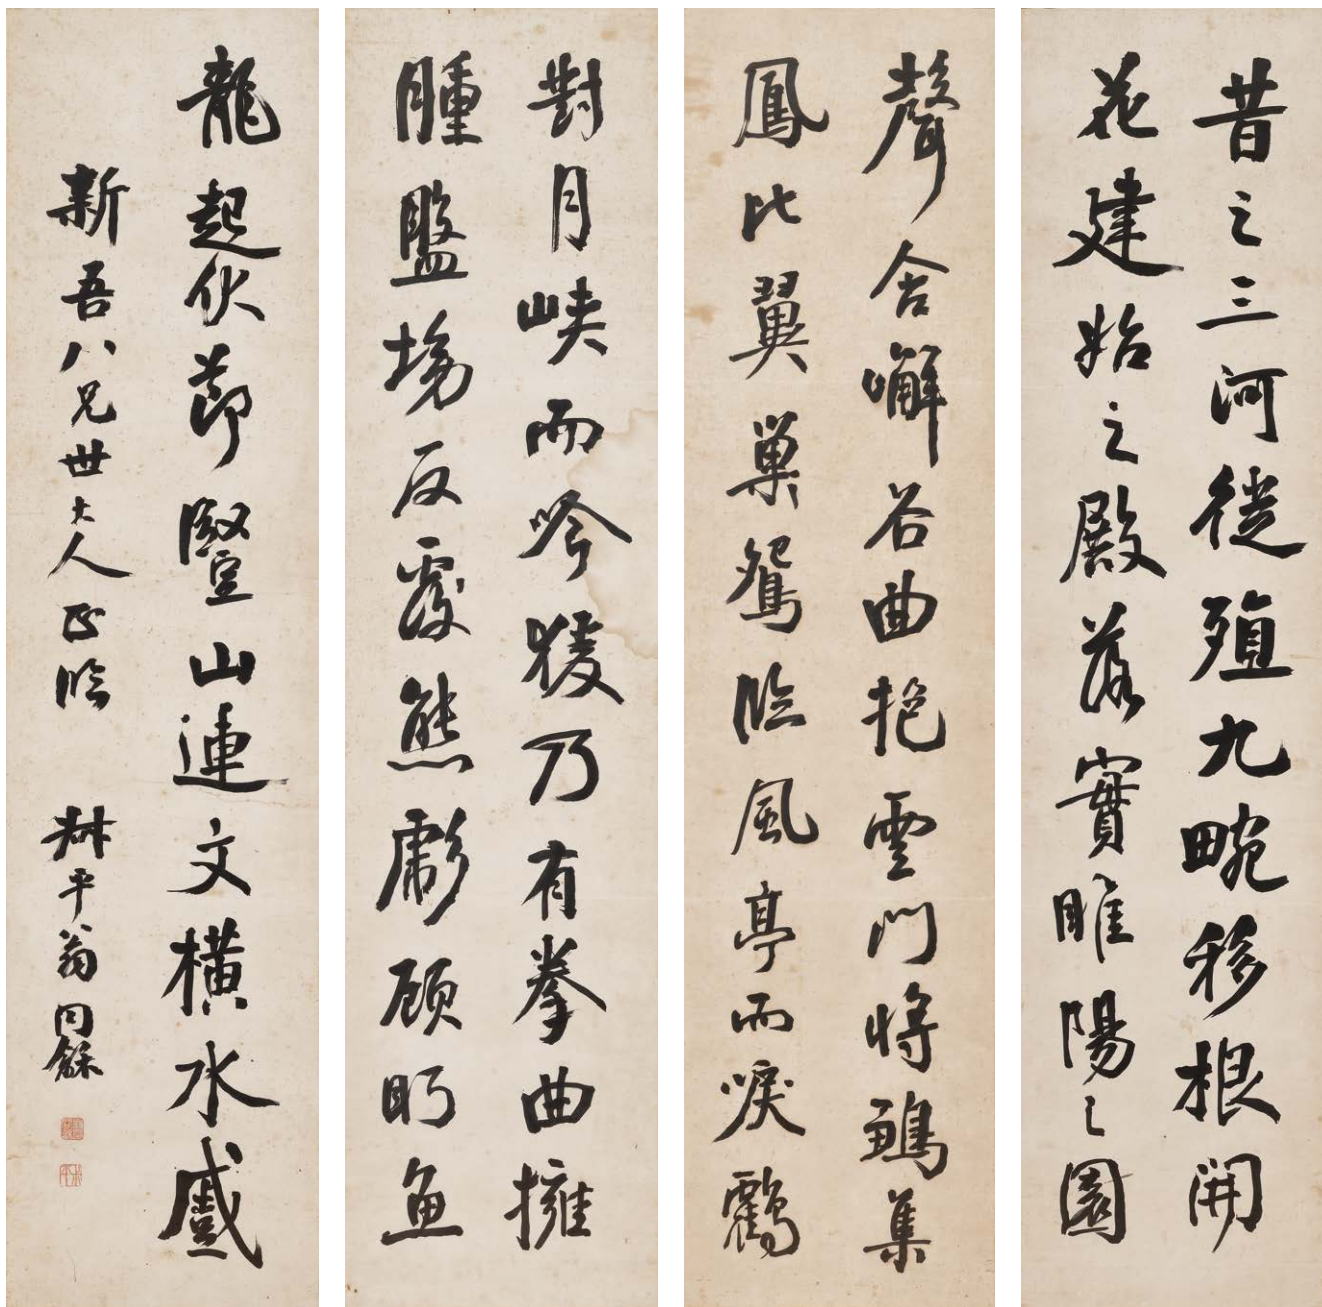 昔之三河徙殖九畹移根開
花建始之殿落實睢陽之園
聲含嶰谷曲抱雲門將鶵集
鳳比翼巢鴛臨風亭而唳鶴
對月峽而吟猨乃有拳曲擁
腫盤坳反覆熊彪顧眄魚
龍起伏節豎山連文橫水蹙
新吾八兄世大人正臨
叔平翁同龢